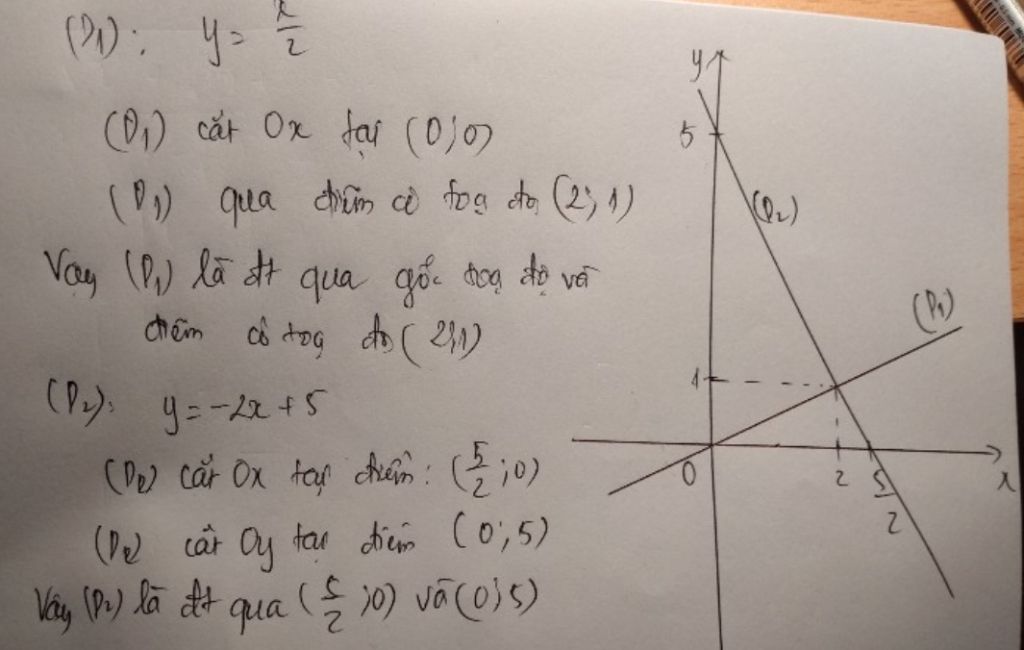 (D₁): y = x/2
(D₁) cắt Ox tại (0;0)
(D₁) qua điểm có toạ độ (2;1)
Vậy (D₁) là đt qua gốc toạ độ và
điểm có toạ độ (2;1)
(D₂): y = -2x + 5
(D₂) cắt Ox tại điểm: (5/2;0)
(D₂) cắt Oy tại điểm (0;5)
Vậy (D₂) là đt qua (5/2;0) và (0;5)
y
5
(D₂)
(D₁)
1
0
2
5/2
x